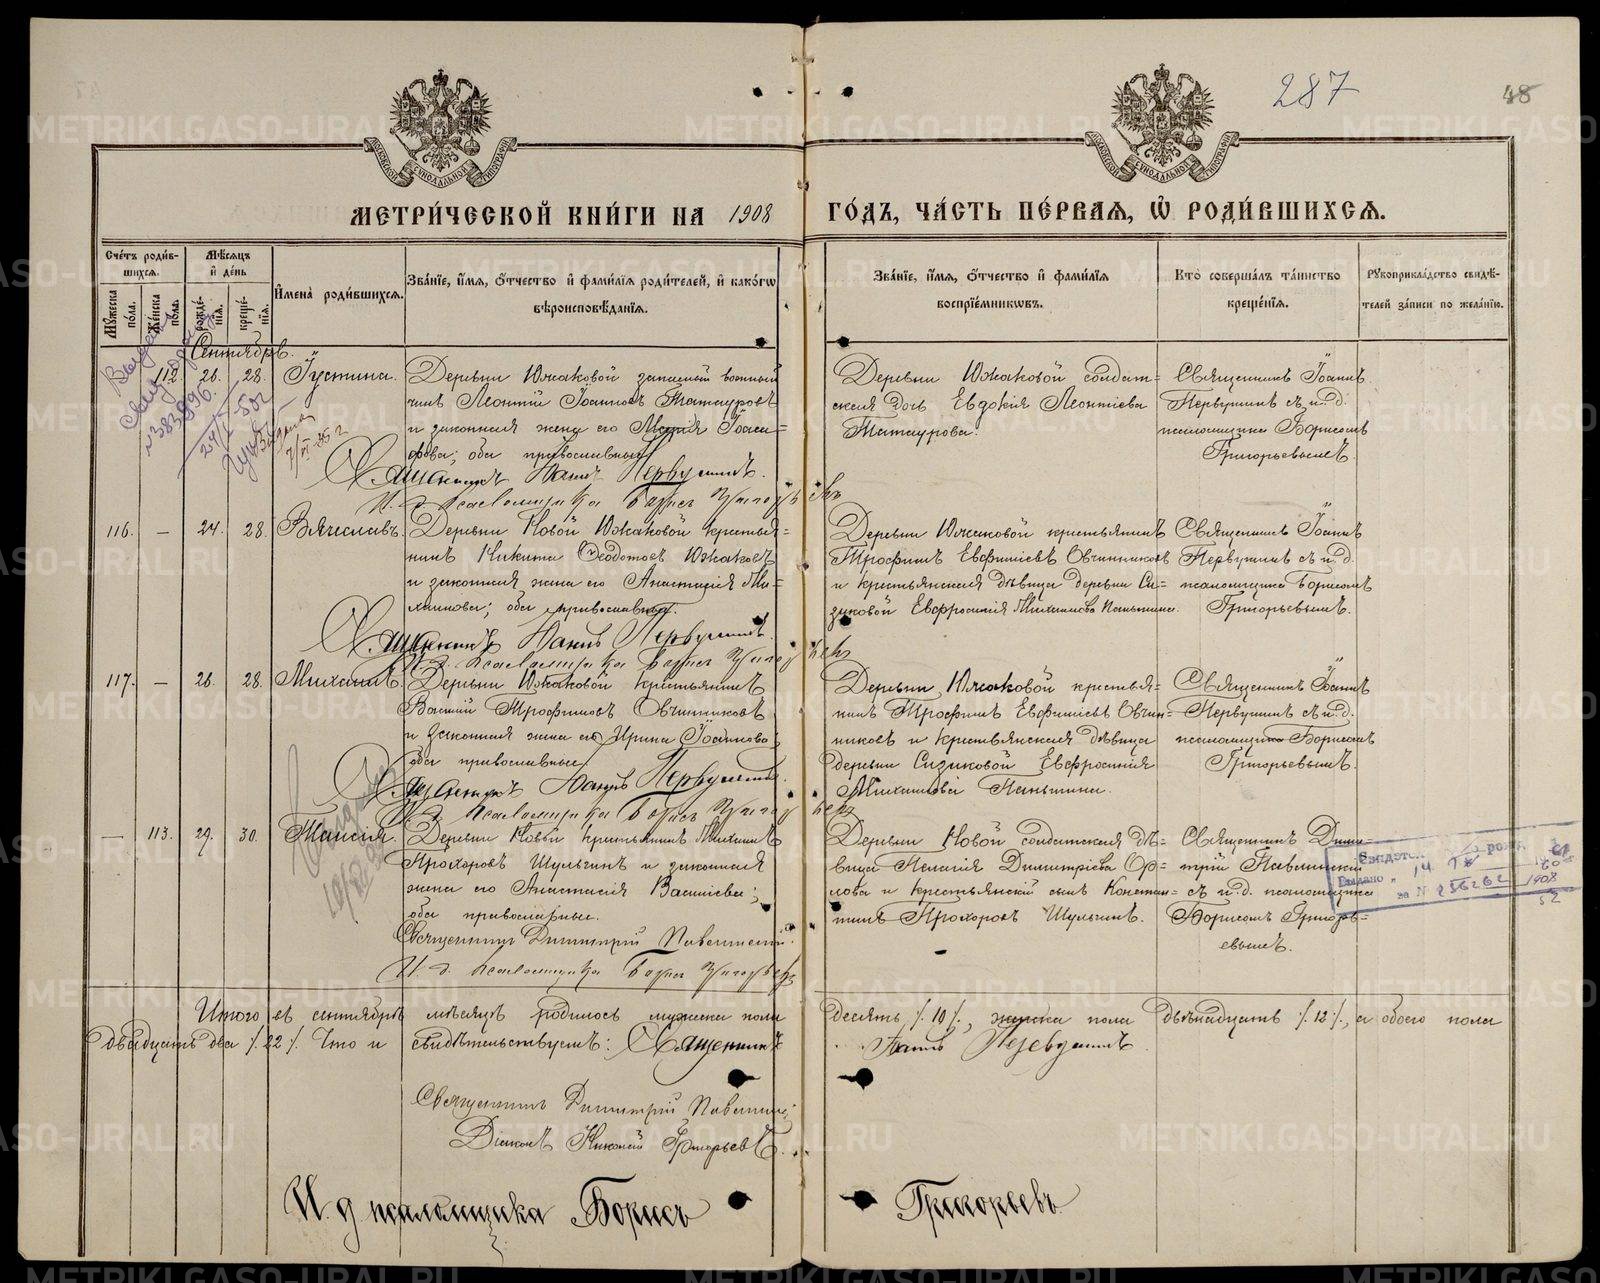 287
48
МЕТРИ́ЧЕСКОЙ КНИ́ГИ НА 1908 ГО́ДЪ, ЧА́СТЬ ПЕ́РВАЯ, Ѡ РОДИ́ВШИХСЯ.
Сче́тъ роди́в-
шихся.
Му́жеска по́ла.
Же́нска по́ла.
Мѣ́сяцъ
и҆ де́нь
рожде́-
нїя.
креще́-
нїя.
И҆мена̀ роди́вшихся.
Зва́нїе, и҆́мя, ѻ҆́тчество и҆ фами́лїя роди́телей, и҆ како́гѡ
вѣроисповѣ́данїя.
Зва́нїе, и҆́мя, ѻ҆́тчество и҆ фами́лїя
воспрїе́мниковъ.
Кто̀ соверша́лъ та́инство
креще́нїя.
Рукоприкла́дство свидѣ́-
телей за́писи по жела́нїю.
Сентябрь.
112. 26. 28. Іустина.
Деревни Южаковой запасный военный
чинъ Леонтій Іоанновъ Татауровъ
и законная жена его Марія Іоаса-
фова; оба православные.
Священникъ Іоаннъ Первушинъ.
И. д. псаломщика Борисъ Григорьевъ
Деревни Южаковой солдат-
ская дочь Евдокія Леонтіева
Татаурова.
Священникъ Іоаннъ
Первушинъ съ и. д.
псаломщика Борисомъ
Григорьевымъ.
116. — 24. 28. Вячеславъ.
Деревни Новой Южаковой крестья-
нинъ Никита Ѳеодотовъ Южаковъ
и законная жена его Анастасія Ми-
хаилова; оба православные.
Священникъ Іоаннъ Первушинъ.
И. д. псаломщика Борисъ Григорьевъ
Деревни Южаковой крестьянинъ
Трофимъ Евфиміевъ Овчинниковъ
и крестьянская дѣвица деревни Си-
зиковой Евфросинія Михаилова Паньшина.
Священникъ Іоаннъ
Первушинъ съ и. д.
псаломщика Борисомъ
Григорьевымъ.
117. — 26. 28. Михаилъ.
Деревни Южаковой крестьянинъ
Василій Трофимовъ Овчинниковъ
и законная жена его Ирина Іоаннова;
оба православные.
Священникъ Іоаннъ Первушинъ.
И. д. псаломщика Борисъ Григорьевъ
Деревни Южаковой крестья-
нинъ Трофимъ Евфиміевъ Овчин-
никовъ и крестьянская дѣвица
деревни Сизиковой Евфросинія
Михаилова Паньшина.
Священникъ Іоаннъ
Первушинъ съ и. д.
псаломщика Борисомъ
Григорьевымъ.
— 113. 29. 30. Таисія.
Деревни Новой крестьянинъ Михаилъ
Прохоровъ Шульгинъ и законная
жена его Анастасія Васильева;
оба православные.
Священникъ Димитрій Павлинскій.
И. д. псаломщика Борисъ Григорьевъ
Деревни Новой солдатская дѣ-
вица Пелагія Димитріева Ор-
лова и крестьянскій сынъ Констан-
тинъ Прохоровъ Шульгинъ.
Священникъ Дими-
трій Павлинскій
съ и. д. псаломщика
Борисомъ Григорь-
евымъ.
Итого въ сентябрѣ мѣсяцѣ родилось мужска пола десять /.10/., женска пола двѣнадцать /.12/., а обоего пола
двадцать два /.22/. Что и свидѣтельствуемъ: Священникъ Іоаннъ Первушинъ.
Священникъ Димитрій Павлинскій
Діаконъ Николай Григорьевъ.
И. д. псаломщика Борисъ Григорьевъ.
METRIKI.GASO-URAL.RU